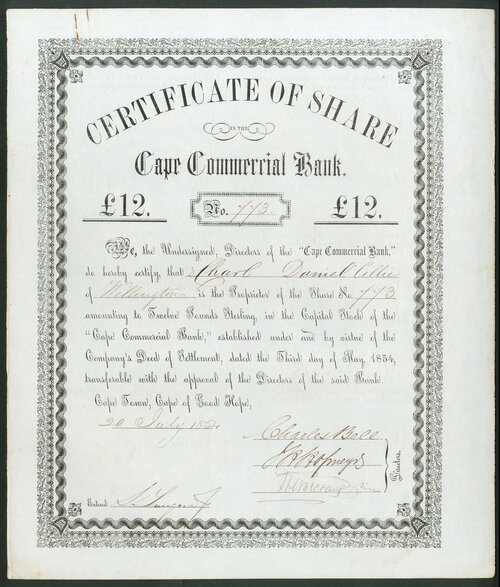 CERTIFICATE OF SHARE
IN THE
Cape Commercial Bank.
£12. No. 773 £12.
We, the Undersigned, Directors of the "Cape Commercial Bank,"
do hereby certify, that Charl Daniel Cillie
of Wellington is the Proprietor of the Share No. 773
amounting to Twelve Pounds Sterling, in the Capital Stock of the
"Cape Commercial Bank," established under and by virtue of the
Company's Deed of Settlement, dated the Third day of May, 1854,
transferable with the approval of the Directors of the said Bank.
Cape Town, Cape of Good Hope,
24 July 1854
Charles Bell
Hofmeyr
Directors.
Entered: